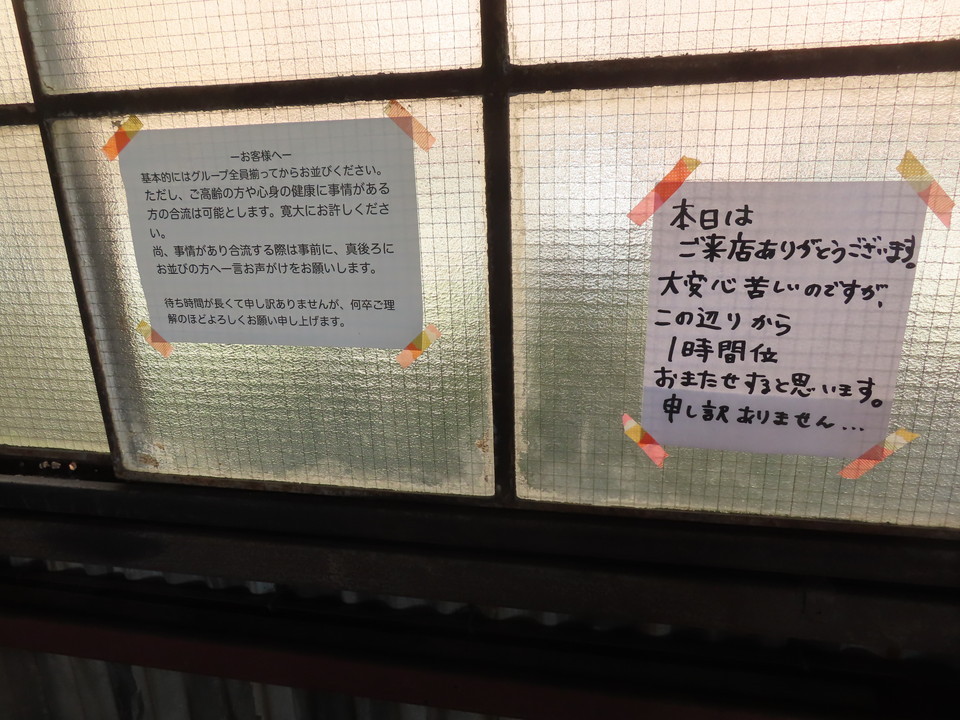 ーお客様へー
基本的にはグループ全員揃ってからお並びください。
ただし、ご高齢の方や心身の健康に事情がある
方の合流は可能とします。寛大にお許しくださ
い。
尚、事情があり合流する際は事前に、真後ろに
お並びの方へ一言お声がけをお願いします。
待ち時間が長くて申し訳ありませんが、何卒ご理
解のほどよろしくお願い申し上げます。
本日は
ご来店ありがとうございます!
大変心苦しいのですが、
この辺りから
1時間位
おまたせすると思います。
申し訳ありません...